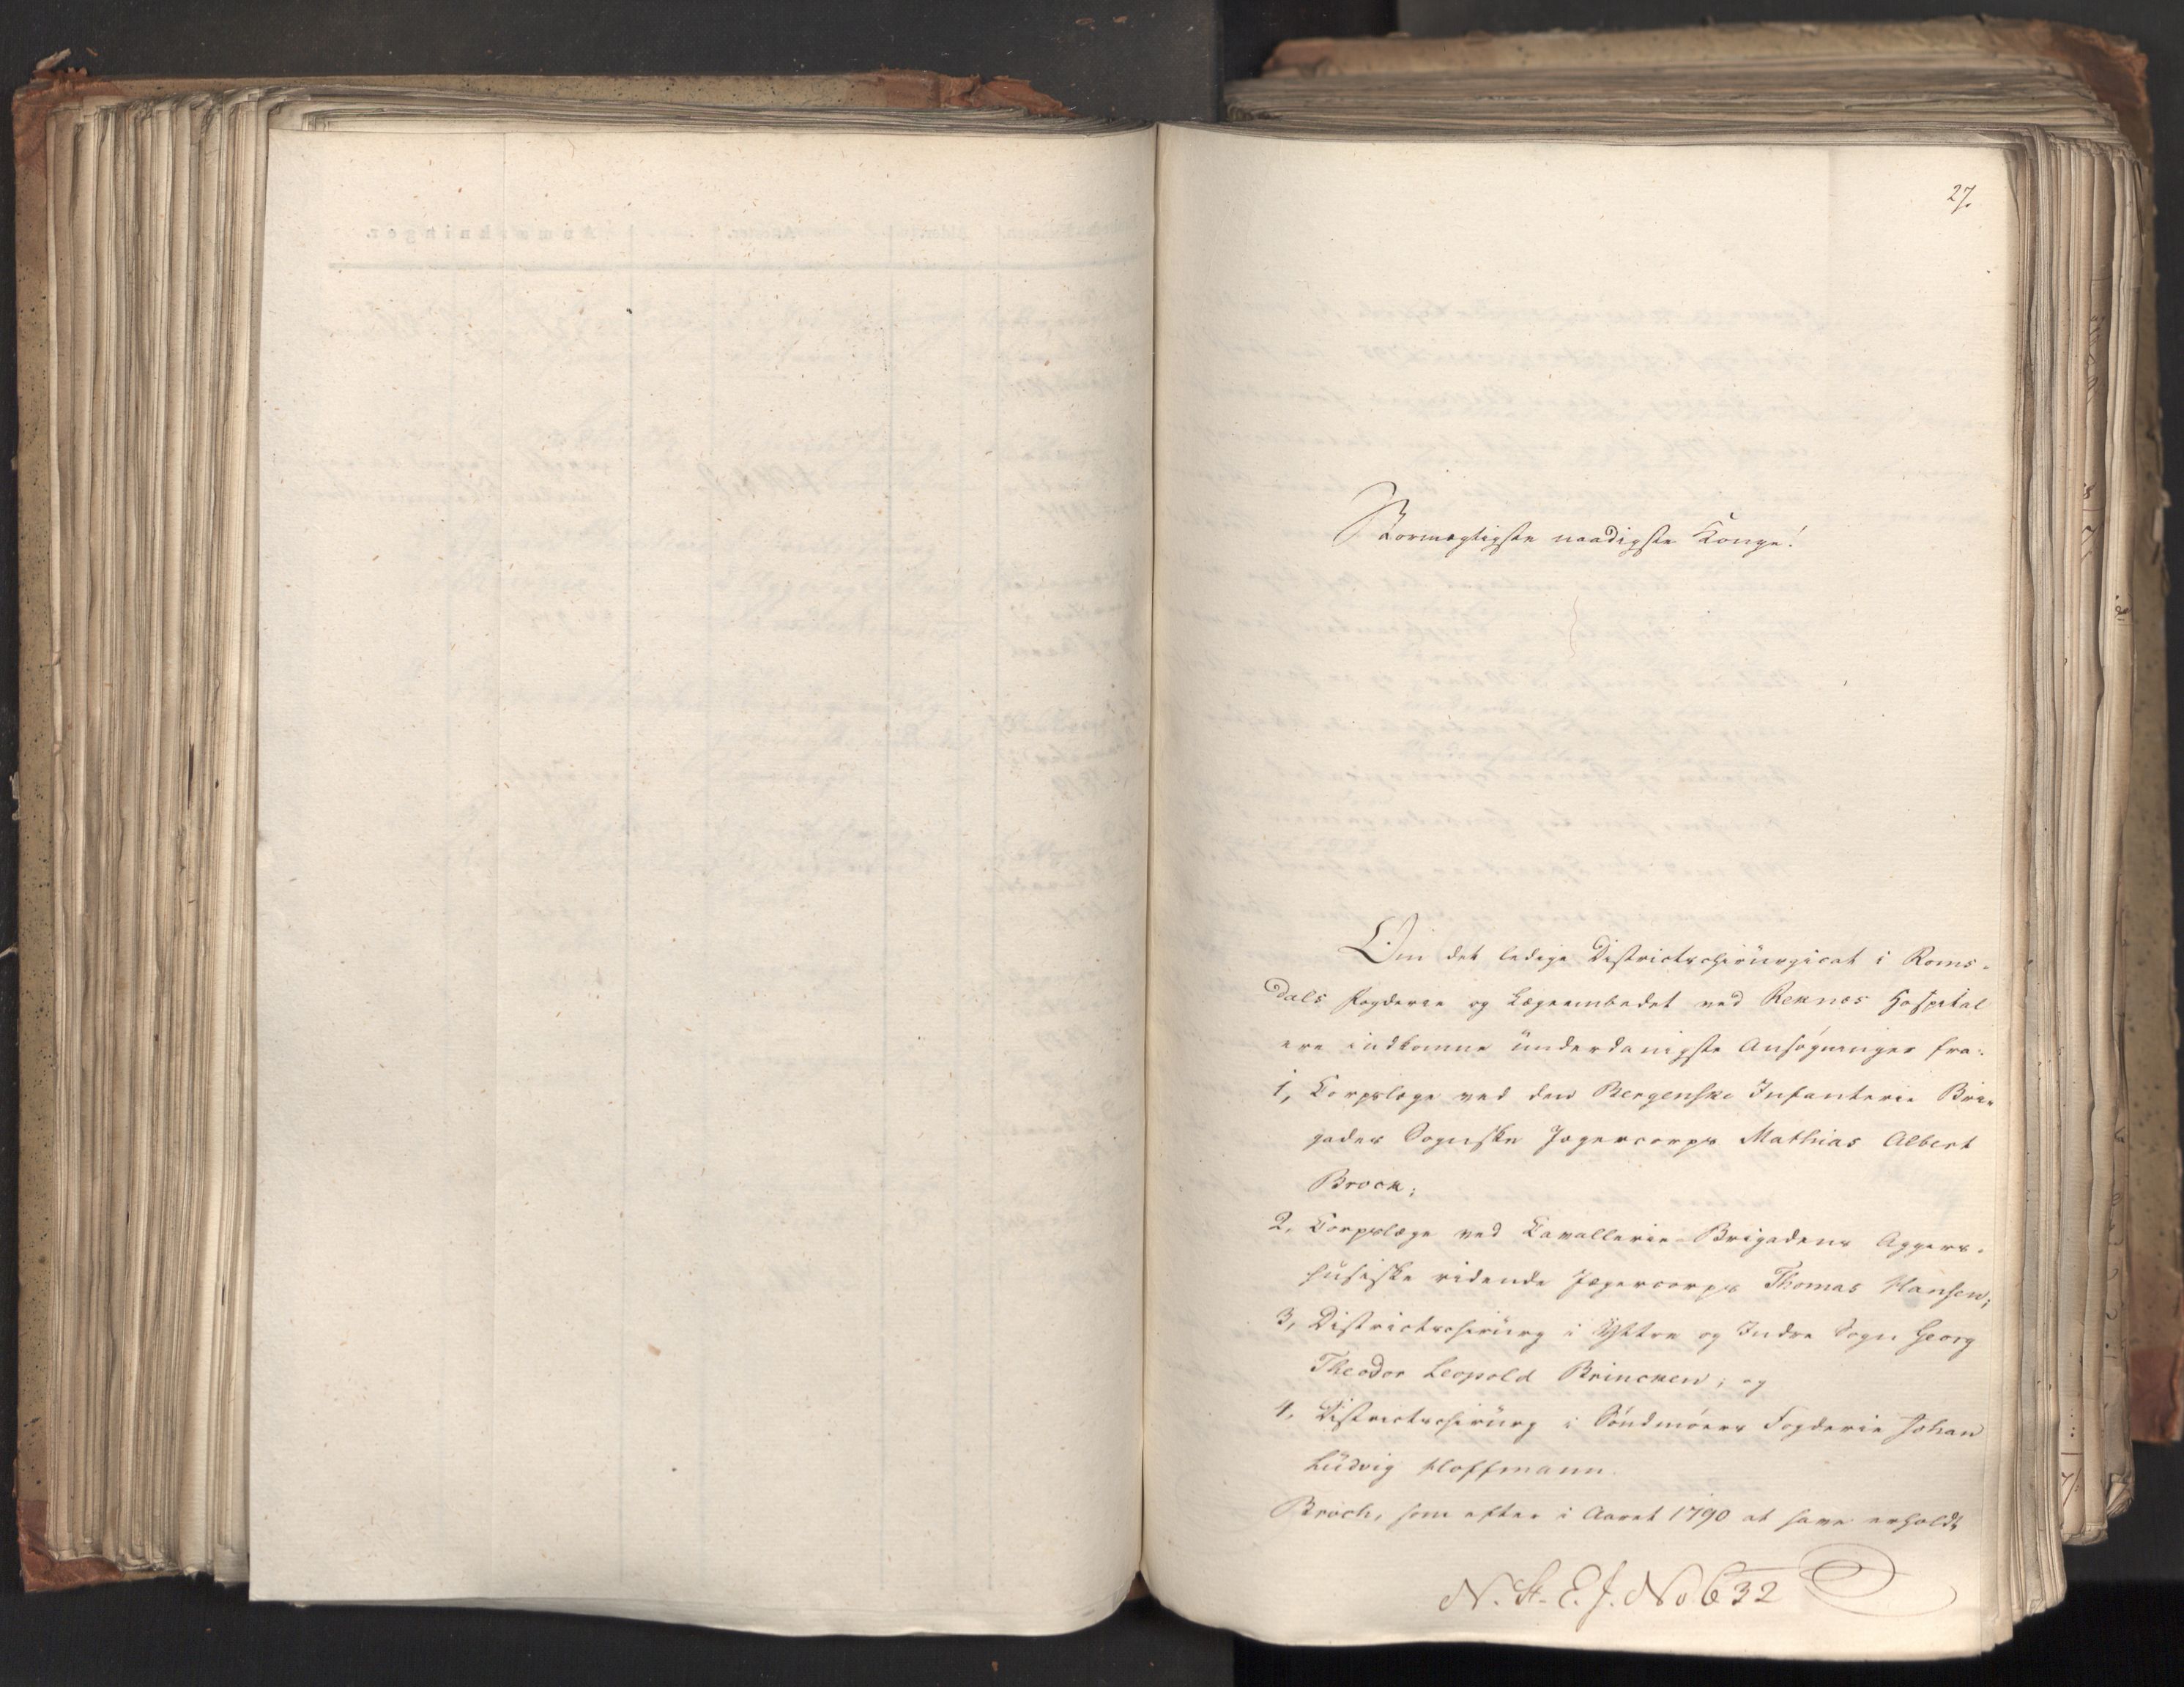 27.
Stormægtigste naadigste Konge!
Om det ledige Districtschirurgicat i Roms-
dals Fogderie og Lægeembedet ved Reknes Hospital
ere indkomne ünderdanigste Ansøgninger fra:
1, Corpslæge ved den Bergenske Infanterie Bri-
gades Sognske Jægercorps Mathias Albert
Brock;
2, Corpslæge ved Cavallerie-Brigadens Aggers-
husiske ridende Jægercorps Thomas Hansen;
3, Districtschirürg i Yttre og Indre Sogn Georg
Theodor Leopold Brincken; og
4, Districtschirürg i Söndmöers Fogderie Johan
Lüdvig Hoffmann.
Broch, som efter i Aaret 1790 at have erholdt
N. St. E. J. No 632